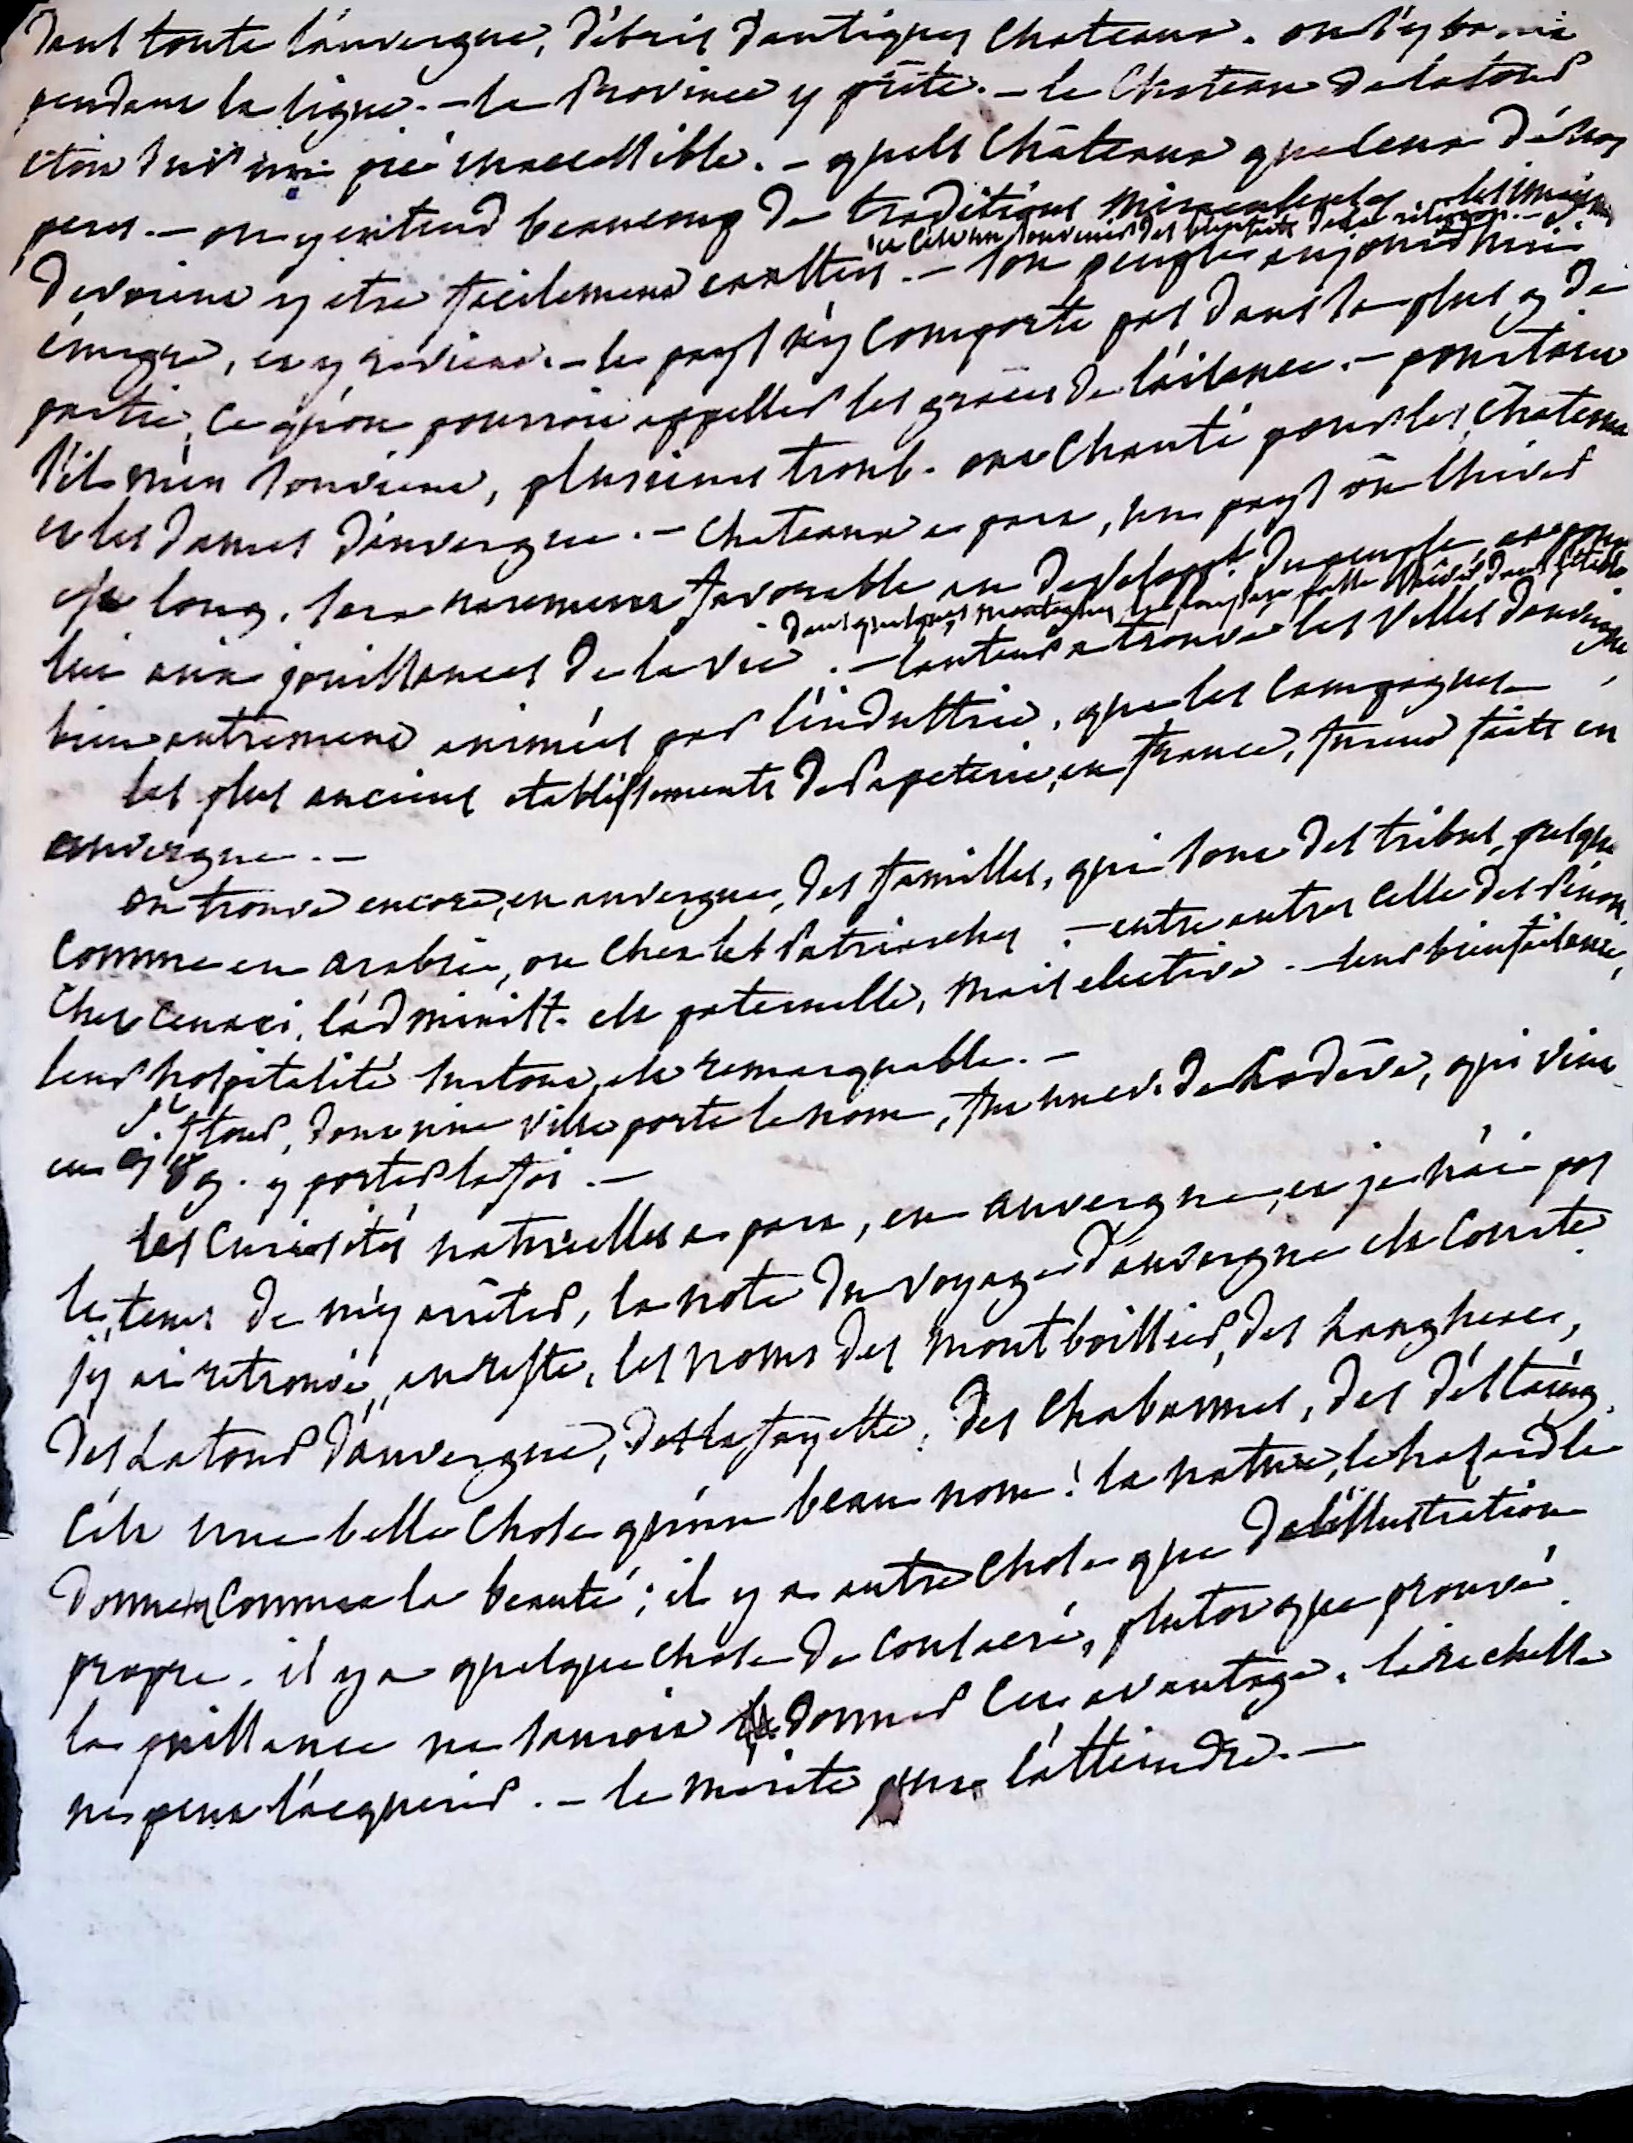 dans toute l'auvergne, débris d'antiques chateaux. on s'y
pendant la ligue. — la Province y prête. — le chateau de latour
étoit sur un pic inaccessible. — quels châteaux que ceux de nos
peres. — on y entend beaucoup de traditions miraculeuses les imagin
et c'est un souvenir des bienfaits de la religion. —
devoient y etre facilement exaltées. — son peuple aujourd'hui
émigre, et y revient. — le pays n'y comporte pas dans la plus g. de
partie, ce qu'on pourroit appeller les graces de l'aisance. — pourtant
s'il m'en souvient, plusieurs troub. ont chanté pour les chateaux
et les dames d'auvergne. — chateaux a part, un pays où l'hiver
est long, sera rarement favorable au developpt. du peuple et pour
dans quelques montagnes, les fait passer l'hiver dans l'étable
lui aux jouissances de la vie. — l'auteur a trouvé les villes d'auvergne
bien autrement animées par l'industrie, que les campagnes
les plus anciens etablissements de Papeterie, en france, furent faits en
auvergne. —
on trouve encore, en auvergne, des familles, qui sont des tribus, presque
comme en arabie, ou chez les Patriarches. — entre autres celle des Pinon.
chez ceux ci, l'administ. est paternelle, mais elective. — leur bienfaisance,
leur hospitalité surtout, est remarquable. —
St. flour, dont une ville porte le nom, fut un ev. de Lodève, qui vint
en 389. y porter la foi. —
les curiosités naturelles a part, en auvergne, et je n'ai pas
le tems de m'y arrêter, la note du voyage d'auvergne est courte
j'y ai retrouvé, au reste, les noms des montboissier, des Langheac,
des Latour d'auvergne, des Lafayette, des Chabannes, des d'éstaing.
C'est une belle chose qu'un beau nom! la nature, le hasard le
donnent comme la beauté; il y a autre chose que de l'illustration
propre. il y a quelque chose de consacré, plutot que prouvé.
la puissance ne sauroit donner cet avantage. la richesse
ne peut l'acquerir. — le merite peut l'atteindre. —